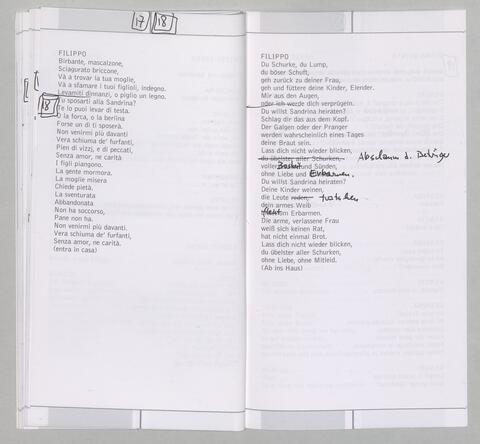 17 18
FILIPPO
Birbante, mascalzone,
Sciagurato briccone,
Và à trovar la tua moglie,
Và a sfamare i tuoi figlioli, indegno.
Levamiti dinnanzi, o piglio un legno.
Tu sposarti alla Sandrina?
18
Te lo puoi levar di testa.
O la forca, o la berlina
Forse un dì ti sposerà.
Non venirmi più davanti
Vera schiuma de' furfanti,
Pien di vizzj, e di peccati,
Senza amor, ne carità.
I figli piangono.
La gente mormora.
La moglie misera
Chiede pietà.
La sventurata
Abbandonata
Non ha soccorso,
Pane non ha.
Non venirmi più davanti
Vera schiuma de' furfanti,
Senza amor, ne carità.
(entra in casa)
FILIPPO
Du Schurke, du Lump,
du böser Schuft,
geh zurück zu deiner Frau,
geh und füttere deine Kinder, Elender.
Mir aus den Augen,
oder ich werde dich verprügeln.
Du willst Sandrina heiraten?
Schlag dir das aus dem Kopf.
Der Galgen oder der Pranger
werden wahrscheinlich eines Tages
deine Braut sein.
Lass dich nicht wieder blicken,
du übelster aller Schurken, Abschaum d. Betrüger
voller Bosheit und Sünden,
ohne Liebe und Erbarmen.
Du willst Sandrina heiraten?
Deine Kinder weinen,
die Leute reden, tratschen
dein armes Weib
fleht um Erbarmen.
Die arme, verlassene Frau
weiß sich keinen Rat,
hat nicht einmal Brot.
Lass dich nicht wieder blicken,
du übelster aller Schurken,
ohne Liebe, ohne Mitleid.
(Ab ins Haus)